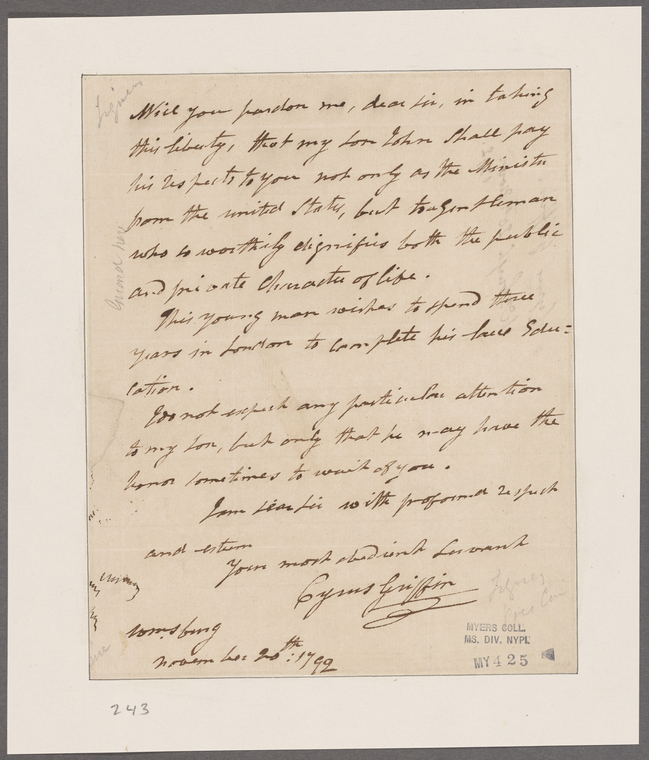 Will you pardon me, dear sir, in taking
this liberty, that my son John Shall pay
his respects to you not only as the Minister
from the united States, but to a gentleman
who so worthily dignifies both the public
and private Character of life.
This young man wishes to spend three
years in London to complete his law Edu=
cation.
I do not expect any particular attention
to my son, but only that he may have the
honor sometimes to wait of you.
I am dear sir with profound respect
and esteem
Your most obedient Servant
Cyrus Griffin
Wmsburg
november 20th: 1792
MYERS COLL.
MS. DIV. NYPL
MY 425
243